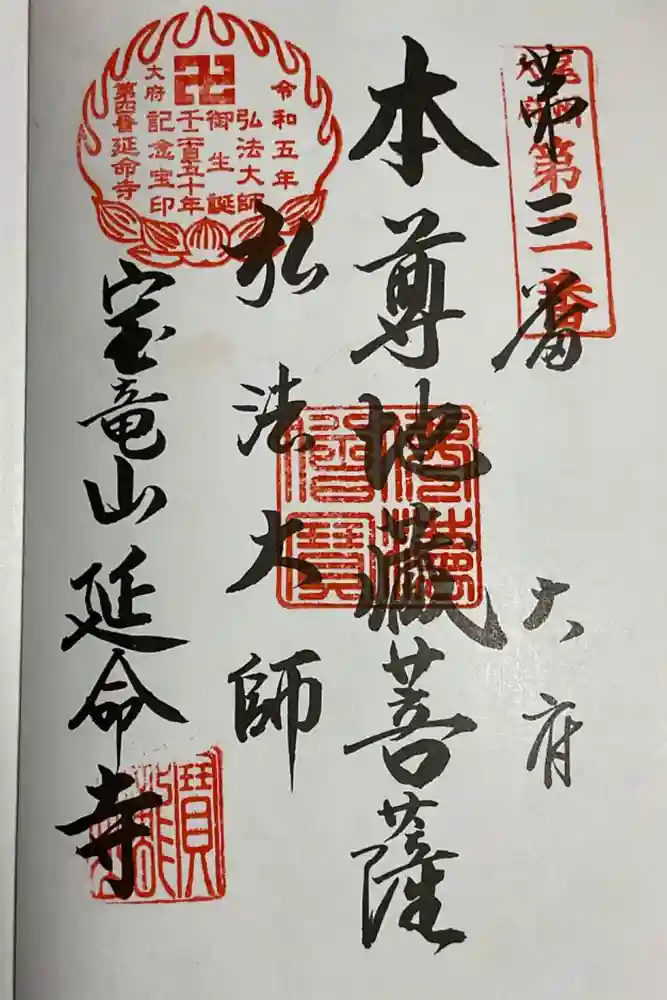 第三番
大府
第三番
本尊地蔵菩薩
佛法僧寶
弘法大師
令和五年
弘法大師
御生誕
卍
千二百五十年
記念宝印
大府
第四番延命寺
宝竜山延命寺